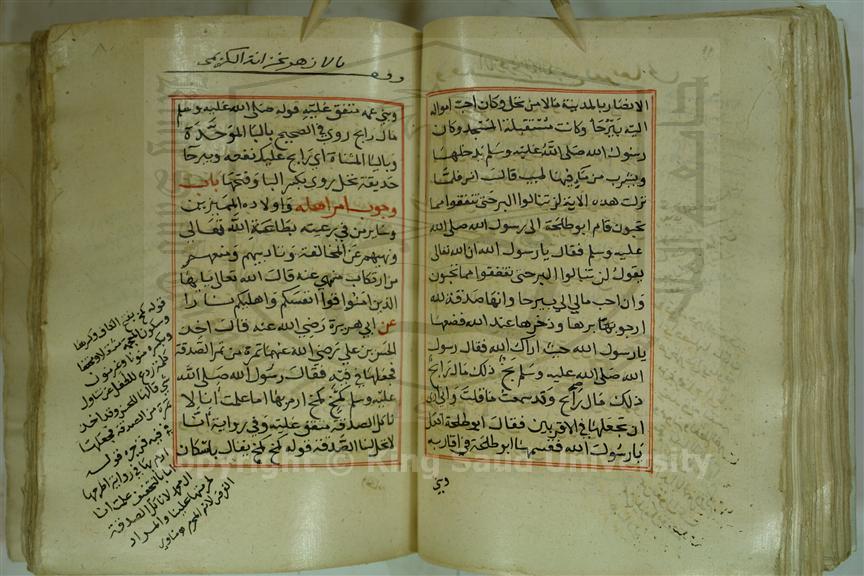 الانصار بالمدينة مالا من نخل وكان احب امواله
اليه بيرحا وكانت مستقبلة المسجد وكان
رسول الله صلى الله عليه وسلم يدخلها
ويشرب من ماء فيها طيب قال انس فلما
نزلت هذه الاية لن تنالوا البر حتى تنفقوا مما
تحبون قام ابو طلحة الى رسول الله صلى الله
عليه وسلم فقال يا رسول الله ان الله تعالى
يقول لن تنالوا البر حتى تنفقوا مما تحبون
وان احب مالي الي بيرحا وانها صدقة لله
ارجو برها وذخرها عند الله فضعها
يا رسول الله حيث اراك الله فقال رسول
الله صلى الله عليه وسلم بخ ذلك مال رابح
ذلك مال رابح وقد سمعت ما قلت واني ارى
ان تجعلها في الاقربين فقال ابو طلحة افعل
يا رسول الله فقسمها ابو طلحة في اقاربه
وبني
بالازهر بخزانة
وقف
وبني عمه متفق عليه قوله صلى الله عليه وسلم
مال رابح روي في الصحيح بالبا الموحدة
وباليا المثناة اي رايح عليك نفعه وبيرحا
حديقة نخل وروي بكسر البا وفتحها باب
وجوب امر اهله واولاده المميزين
وساير من في رعيته بطاعة الله تعالى
ونهيهم عن المخالفة وتاديبهم ومنعهم
من ارتكاب منهي عنه قال الله تعالى يا ايها
الذين امنوا قوا انفسكم واهليكم نارا
عن ابي هريرة رضي الله عنه قال اخذ
الحسن بن علي رضي الله عنهما تمرة من تمر الصدقة
فجعلها في فيه فقال رسول الله صلى الله
عليه وسلم كخ كخ ارم بها اما علمت انا لا
ناكل الصدقة متفق عليه وفي رواية انا
لا تحل لنا الصدقة قوله كخ كخ يقال باسكان
قوله كخ
كلمة ردع للطفل عن تناول
شي قالها للحسن وقد اخذ
تمرة من الصدقة فجعلها
في فيه
Copyright © King Saud University